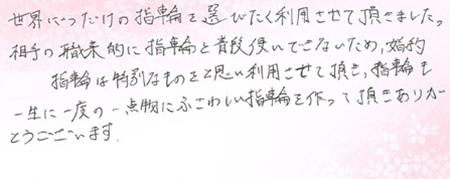 世界に一つだけの指輪を選びたく利用させて頂きました。
相手の職業的に指輪を普段使いできないため、婚約
指輪は特別なものをと思い利用させて頂き、指輪も
一生に一度の一点物にふさわしい指輪を作って頂きありが
とうございます。